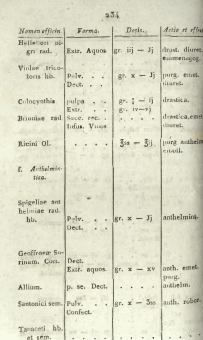 234
Nomen officin. Forma. Dosis. Actio et effec
Hellebori ni-
gri rad. Extr. Aquos gr. iij — ℈j drast. diuret.
emmenagog.
Violae trico-
loris hb. Pulv. . . gr. x — ℈j purg. emet.
Dect. . . . diuret.
Colocynthis pulpa . . drastica.
Extr. . . gr. iv–vj
Brioniae rad. Succ. rec. . drastica, emet
Infus. Vinos diuret.
Ricini Ol. ʒiij — ℥ij purg anthelm
f. Anthelmin-
tica.
Spigeliae ant
helmiae rad.
hb. Pulv. . . gr. x — ℈j anthelmint.
Dect. . .
Geoffroeae Su-
rinam. Cort. Dect.
Extr. aquos. gr. x — xv anth. emet.
purg.
Allium. p. se. Dect. anthelm.
Santonici sem. Pulv. . . gr. x — ʒss anth. robor.
Confect.
Tanaceti hb.
et sem.